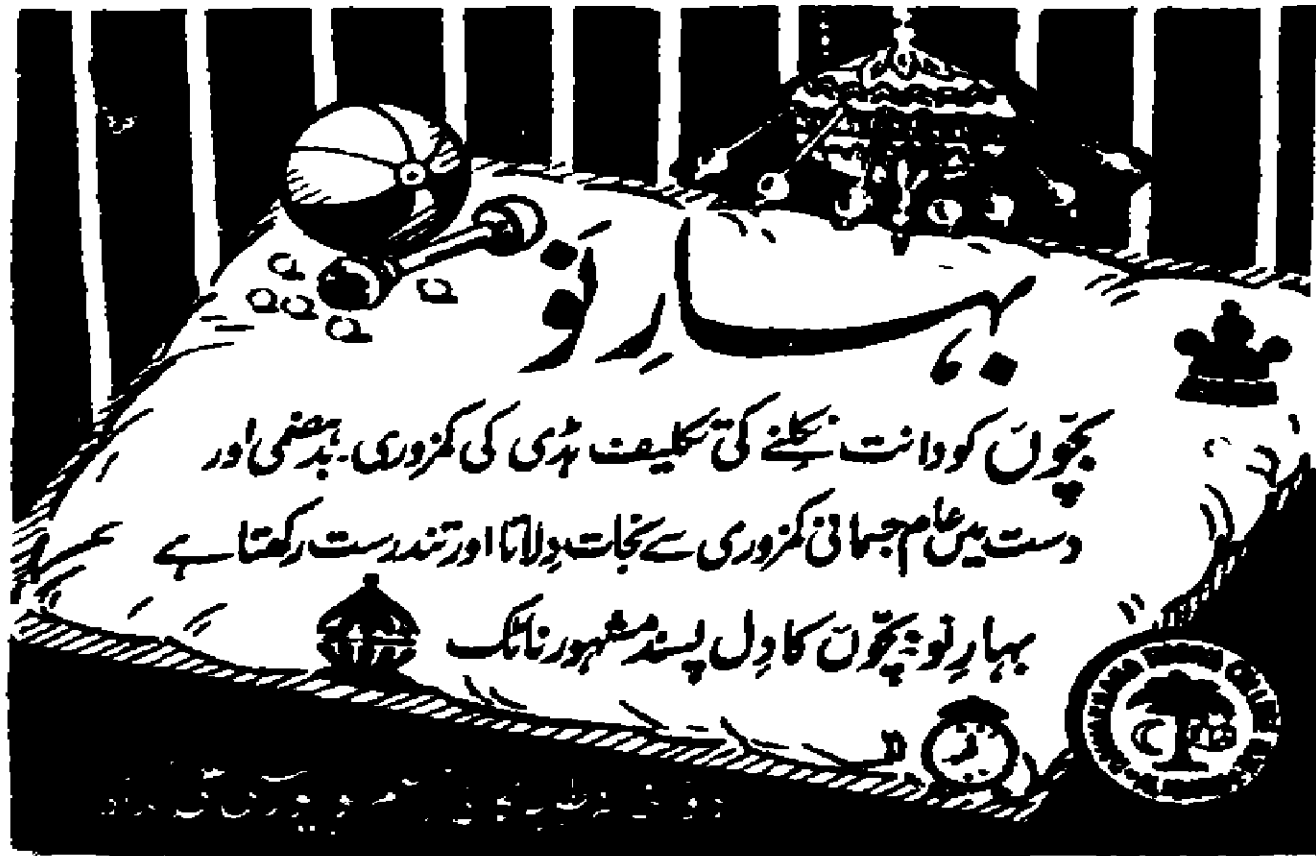 بہارِ نَو
بچّوں کو دانت نکلنے کی تکلیف ہڈی کی کمزوری۔ بدہضمی اور
دست میں عام جسمانی کمزوری سے نجات دِلاتا اور تندرست رکھتا ہے
بہارِ نو: بچّوں کا دِل پسند مشہور ٹانک